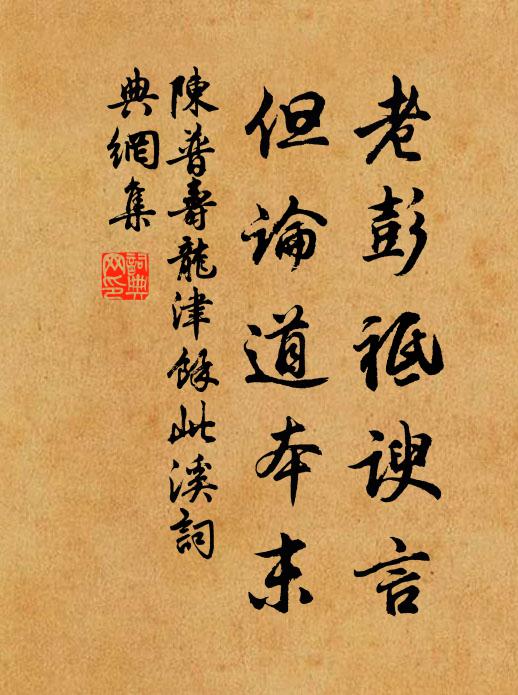 老彭祗謏言
但論道本末
陳普壽龍津餘此溪詞
典網集
詞典網印